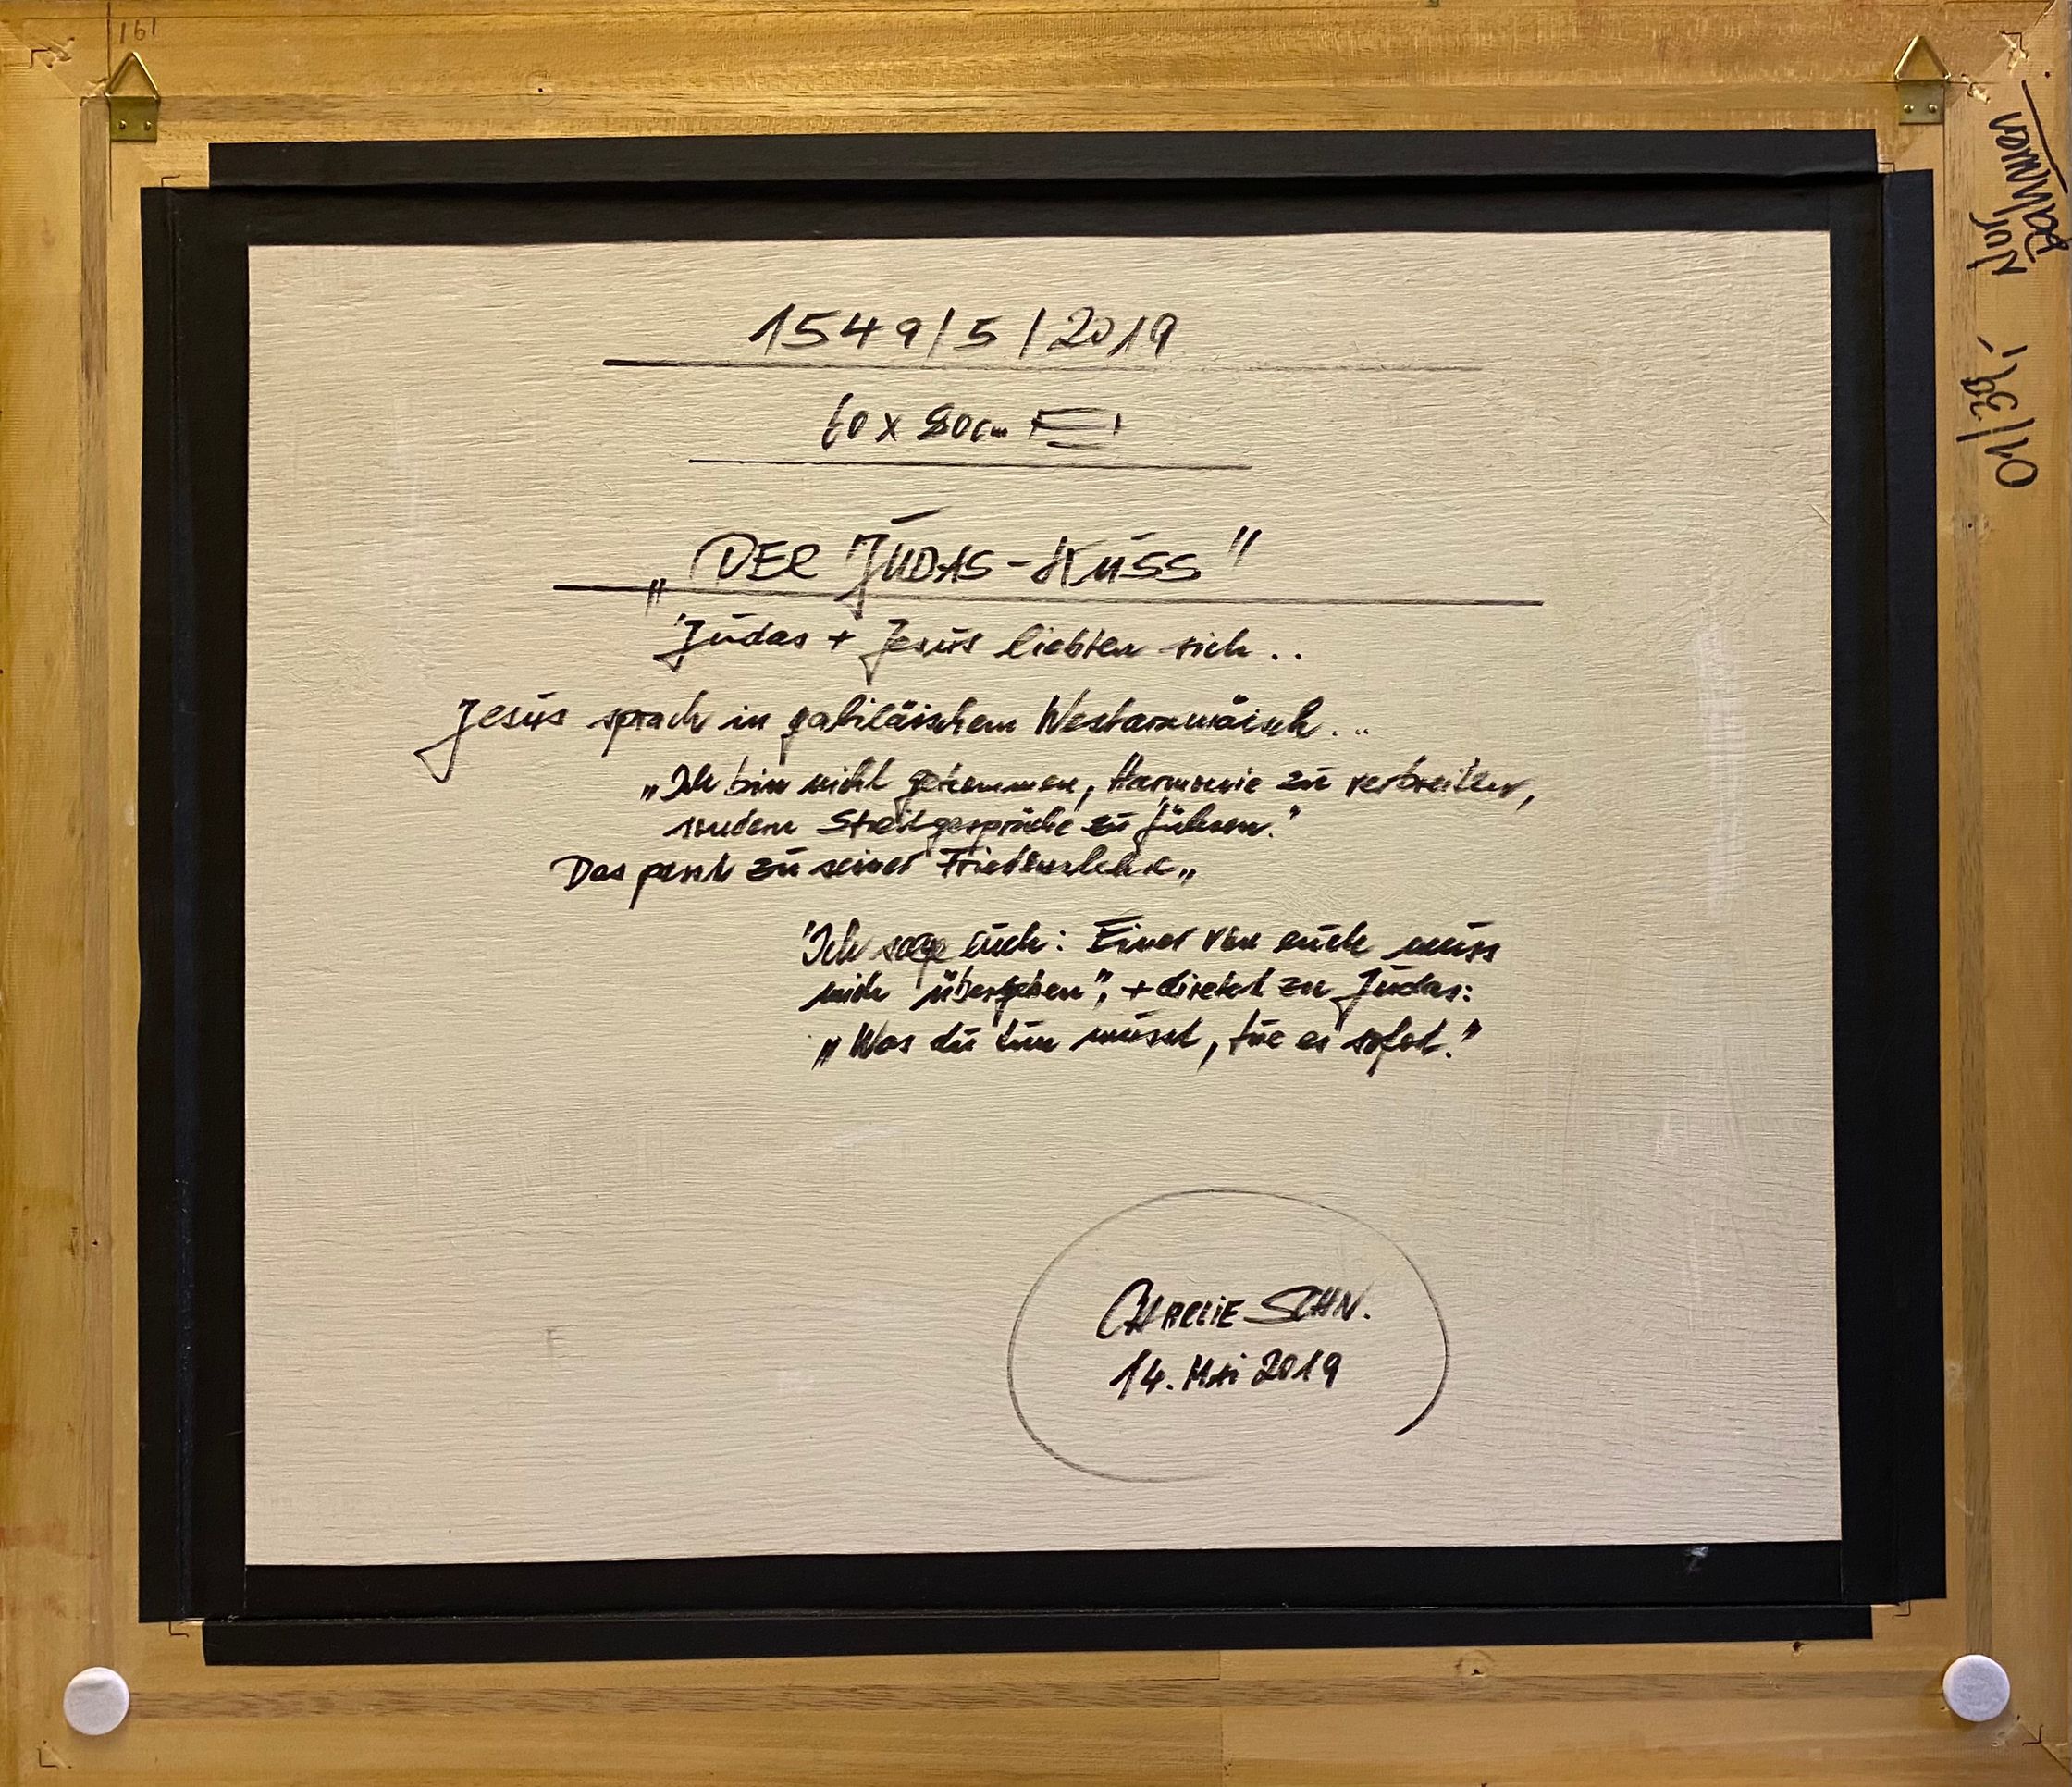 161
1549/5/2019
60 x 80cm
„DER JUDAS-KUSS"
Judas + Jesus liebten sich..
Jesus sprach in galiläischem Westaramäisch...
„Ich bin nicht gekommen, Harmonie zu verbreiten,
sondern Streitgespräche zu führen."
Das passt zu seiner Friedenslehre„
"Ich sage euch: Einer von euch muss
mich übergeben", + direkt zu Judas:
„Was du tun musst, tue es sofort."
CHARLIE SCHN.
14. Mai 2019
Nur
Rahmen
01/39,-